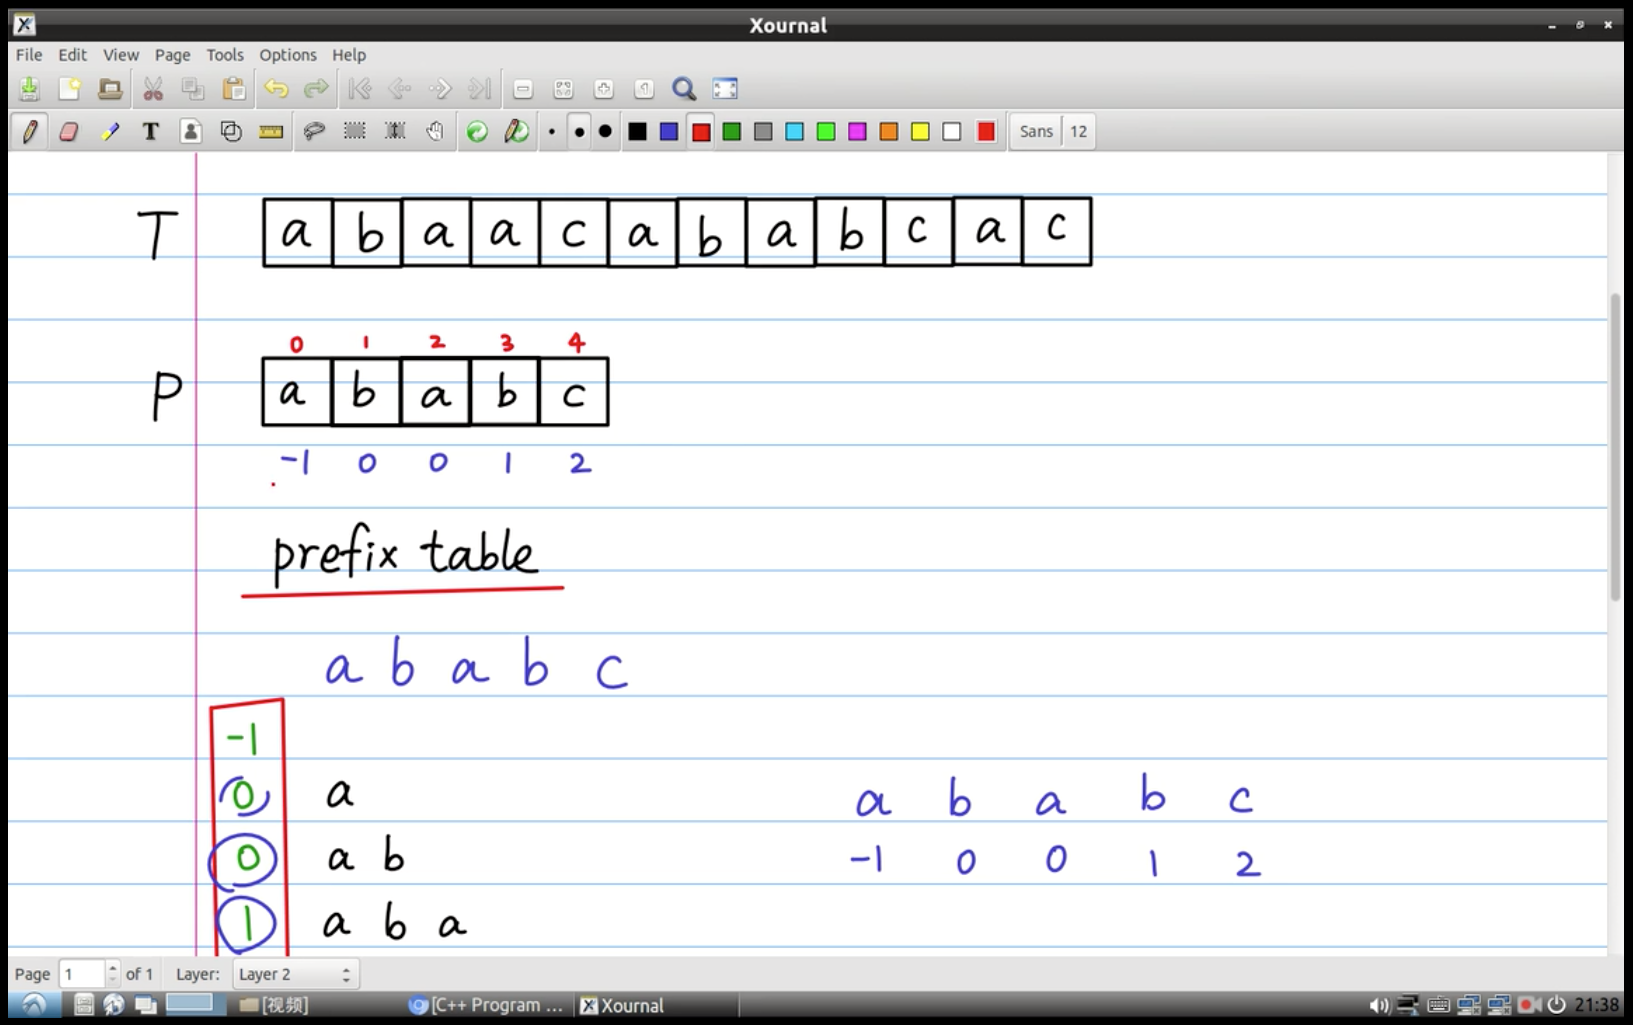 Xournal
File Edit View Page Tools Options Help
Sans 12
T a b a a c a b a b c a c
0 1 2 3 4
P a b a b c
-1 0 0 1 2
prefix table
a b a b c
-1
0 a
a b a b c
0 a b
-1 0 0 1 2
1 a b a
Page 1 of 1 Layer: Layer 2
[视频] [C++ Program ... Xournal 21:38